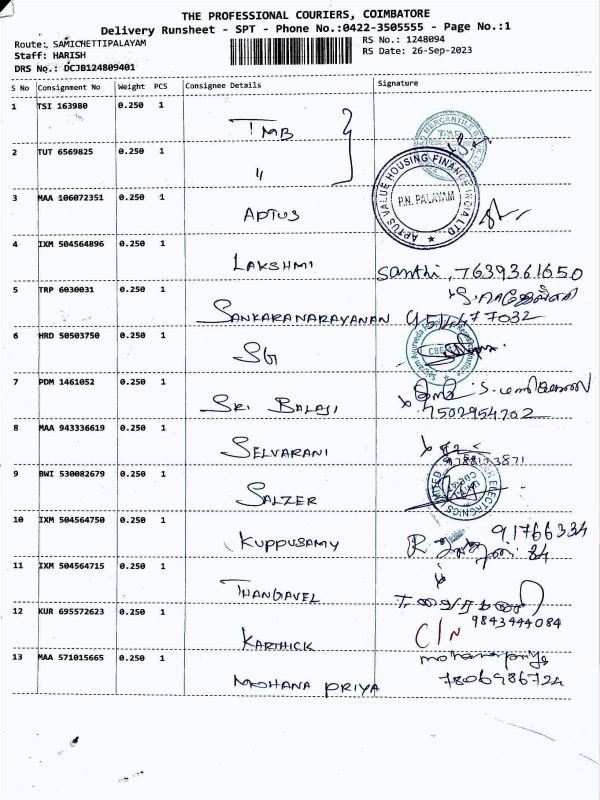 THE PROFESSIONAL COURIERS, COIMBATORE
Delivery Runsheet - SPT - Phone No.:0422-3505555 - Page No.:1
Route: SAMICHETTIPALAYAM
RS No.: 1248094
Staff: HARISH
RS Date: 26-Sep-2023
DRS No.: DCJB124809401
S No Consignment No Weight PCS Consignee Details Signature
1 TSI 163980 0.250 1 TMB
2 TUT 6569825 0.250 1 "
3 MAA 106072351 0.250 1 APTUS
APTUS VALUE HOUSING FINANCE INDIA LTD
P.N. PALAYAM
4 IXM 504564896 0.250 1 LAKSHMI Santhi, 7639361650
5 TRP 6030031 0.250 1 SANKARANARAYANAN
6 HRD 50503750 0.250 1 SG
7 PDM 1461052 0.250 1 SRI BALAJI 7502954702
8 MAA 943336619 0.250 1 SELVARANI
9 BWI 530082679 0.250 1 SALZER
10 IXM 504564750 0.250 1 KUPPUSAMY 91766334
84
11 IXM 504564715 0.250 1 THANGAVEL
9843444084
12 KUR 695572623 0.250 1 KARTHICK C/N
13 MAA 571015665 0.250 1 MOHANA PRIYA mohanapriya
7806986724